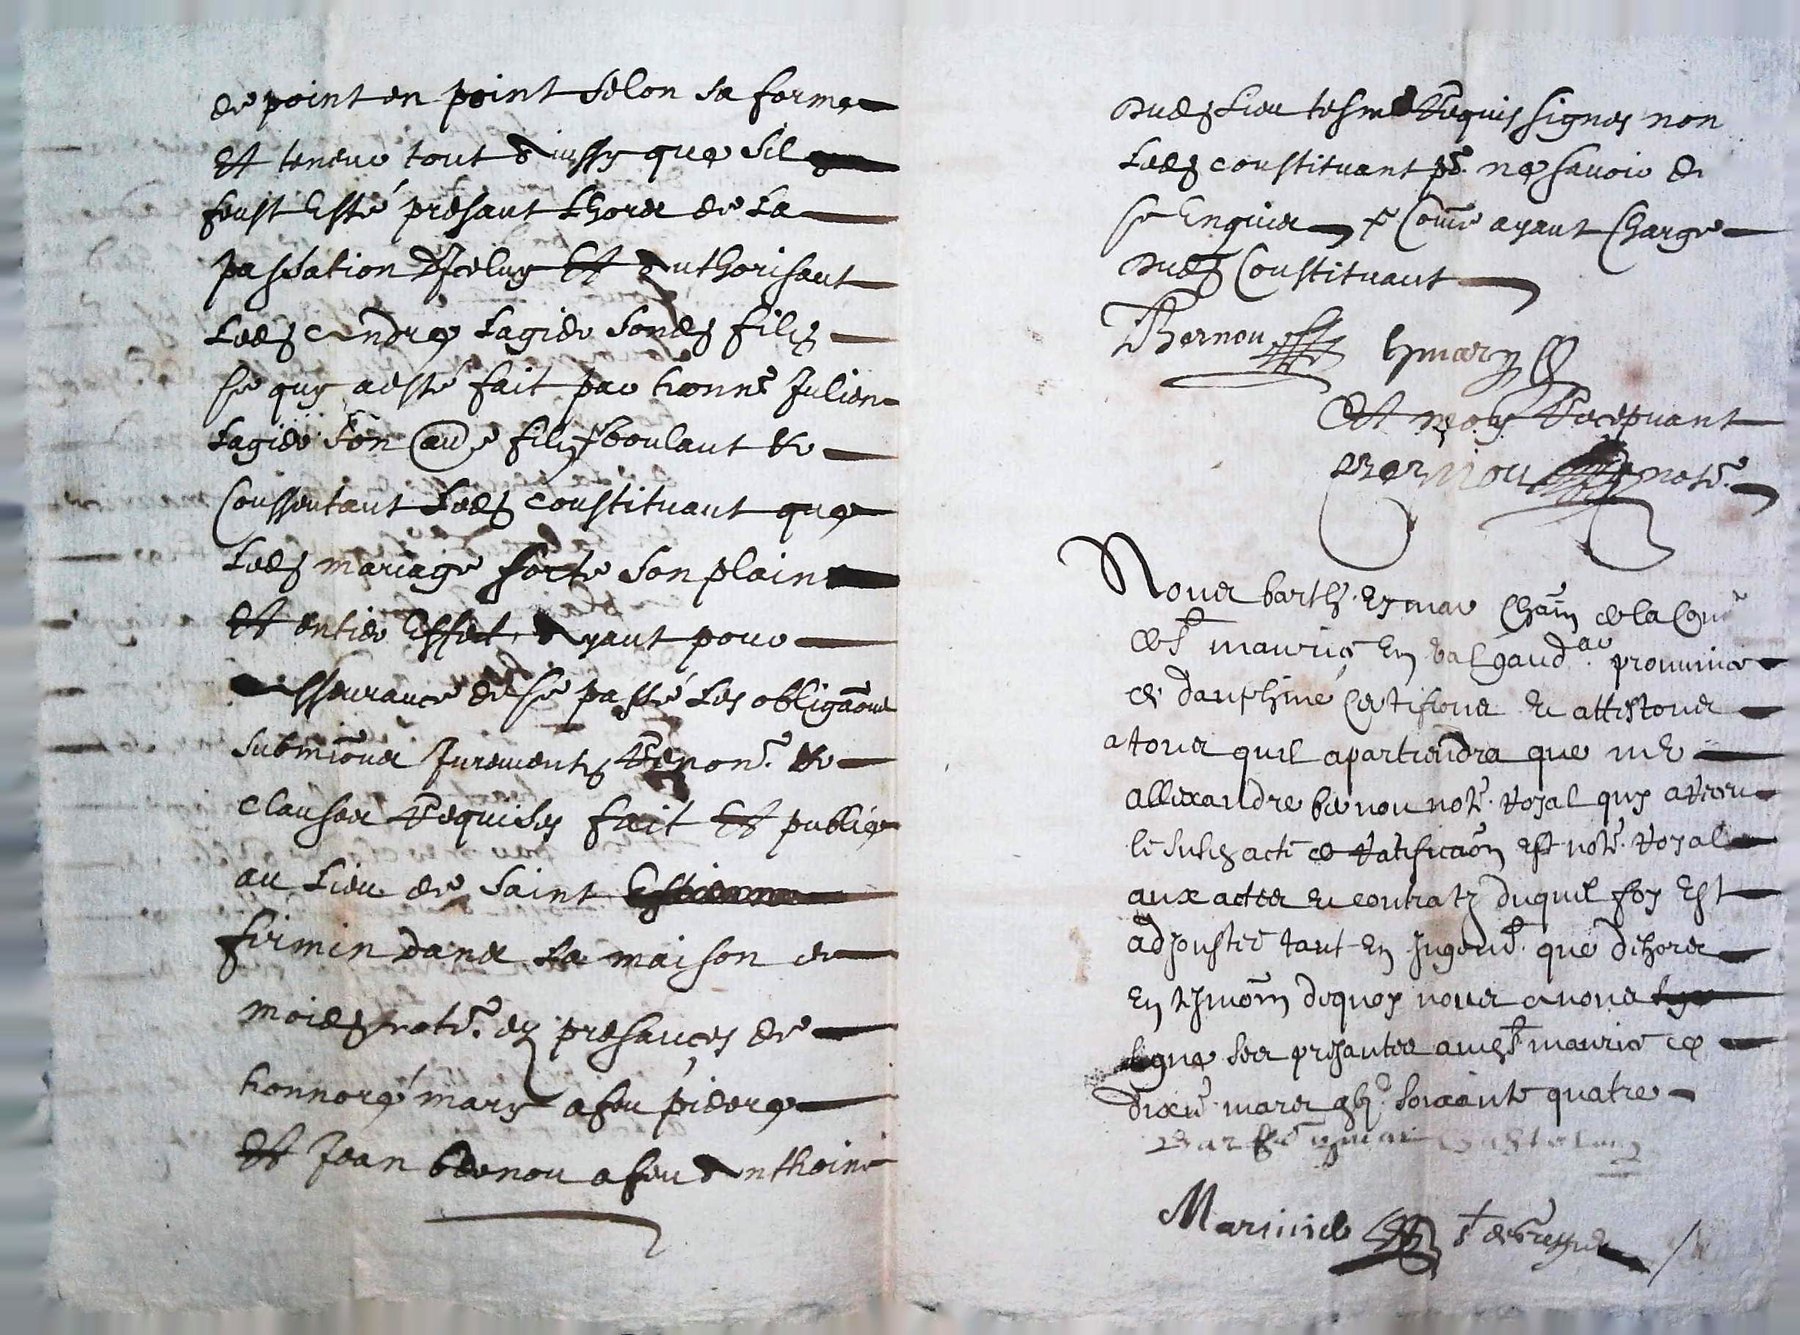 de point en point selon sa forme
Et teneur tout Ainssy que sil
feust Esté présant Lhors de La
passation D'Jceluy Et Authorisant
Led. Andre Lagier Sond. filz
se quy a esté fait par honn.e Julien
Lagier son filz voulant &
Conssentant Led. constituant que
Led. mariage sorte son plain
Et entier Effect, Ayant pour
Asseurance de se passé Les obliga.ons
submi.ons Jurements Renon.s &
clauses Requises fait Et publié
au Lieu de saint
firmin dans La maison de
moid. not.e ez presances de
honnoré mary a feu pierre
Et Jean bernou a feu Anthoine
dud. Lieu tesmo. Requis signes non
Led. constituant p.r ne savoir de
se Enquis Come ayant Charge
dud. Constituant
Bernou hmary
Et moy Recepvant
Bernou not.e
Nous barth. Eymar Chat.n de la Com.te
de S.t maurice En valgaud.ar prouvince
de dauphiné Certifions & attestons
a tous quil apartiendra que me
allexandre bernou not.e royal quy a receu
le susd. acte de Ratificaon est not.e royal
aux actes & contratz duquel foy Est
adjoustée tant En Jugem.t que dehors
En tesmoin dequoy nous avons
signe ses presantes aud. S.t maurice ce
dixie. mars soixante quatre